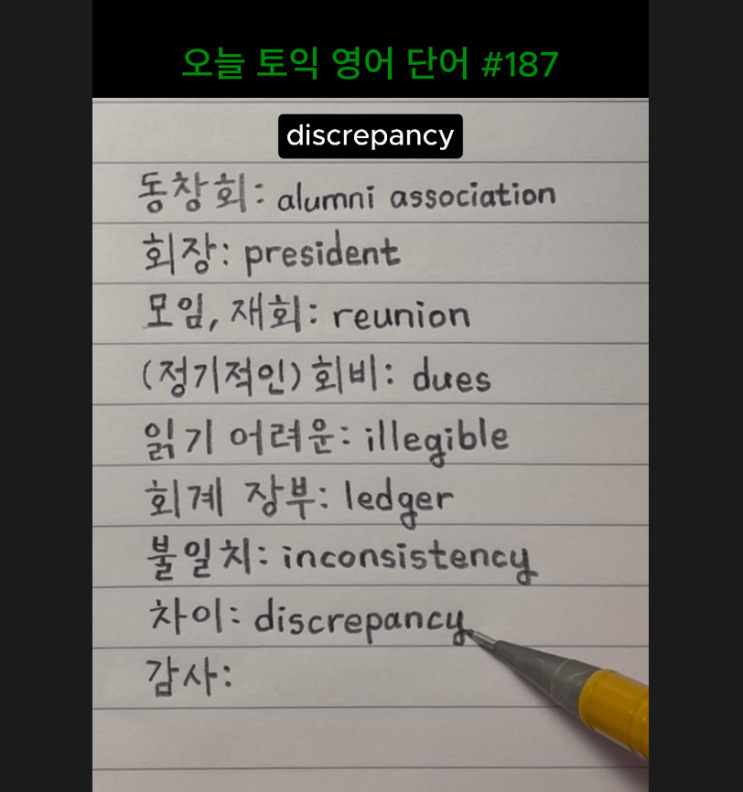 오늘 토익 영어 단어 #187
discrepancy
동창회: alumni association
회장: president
모임, 재회: reunion
(정기적인) 회비: dues
읽기 어려운: illegible
회계 장부: ledger
불일치: inconsistency
차이: discrepancy
감사: